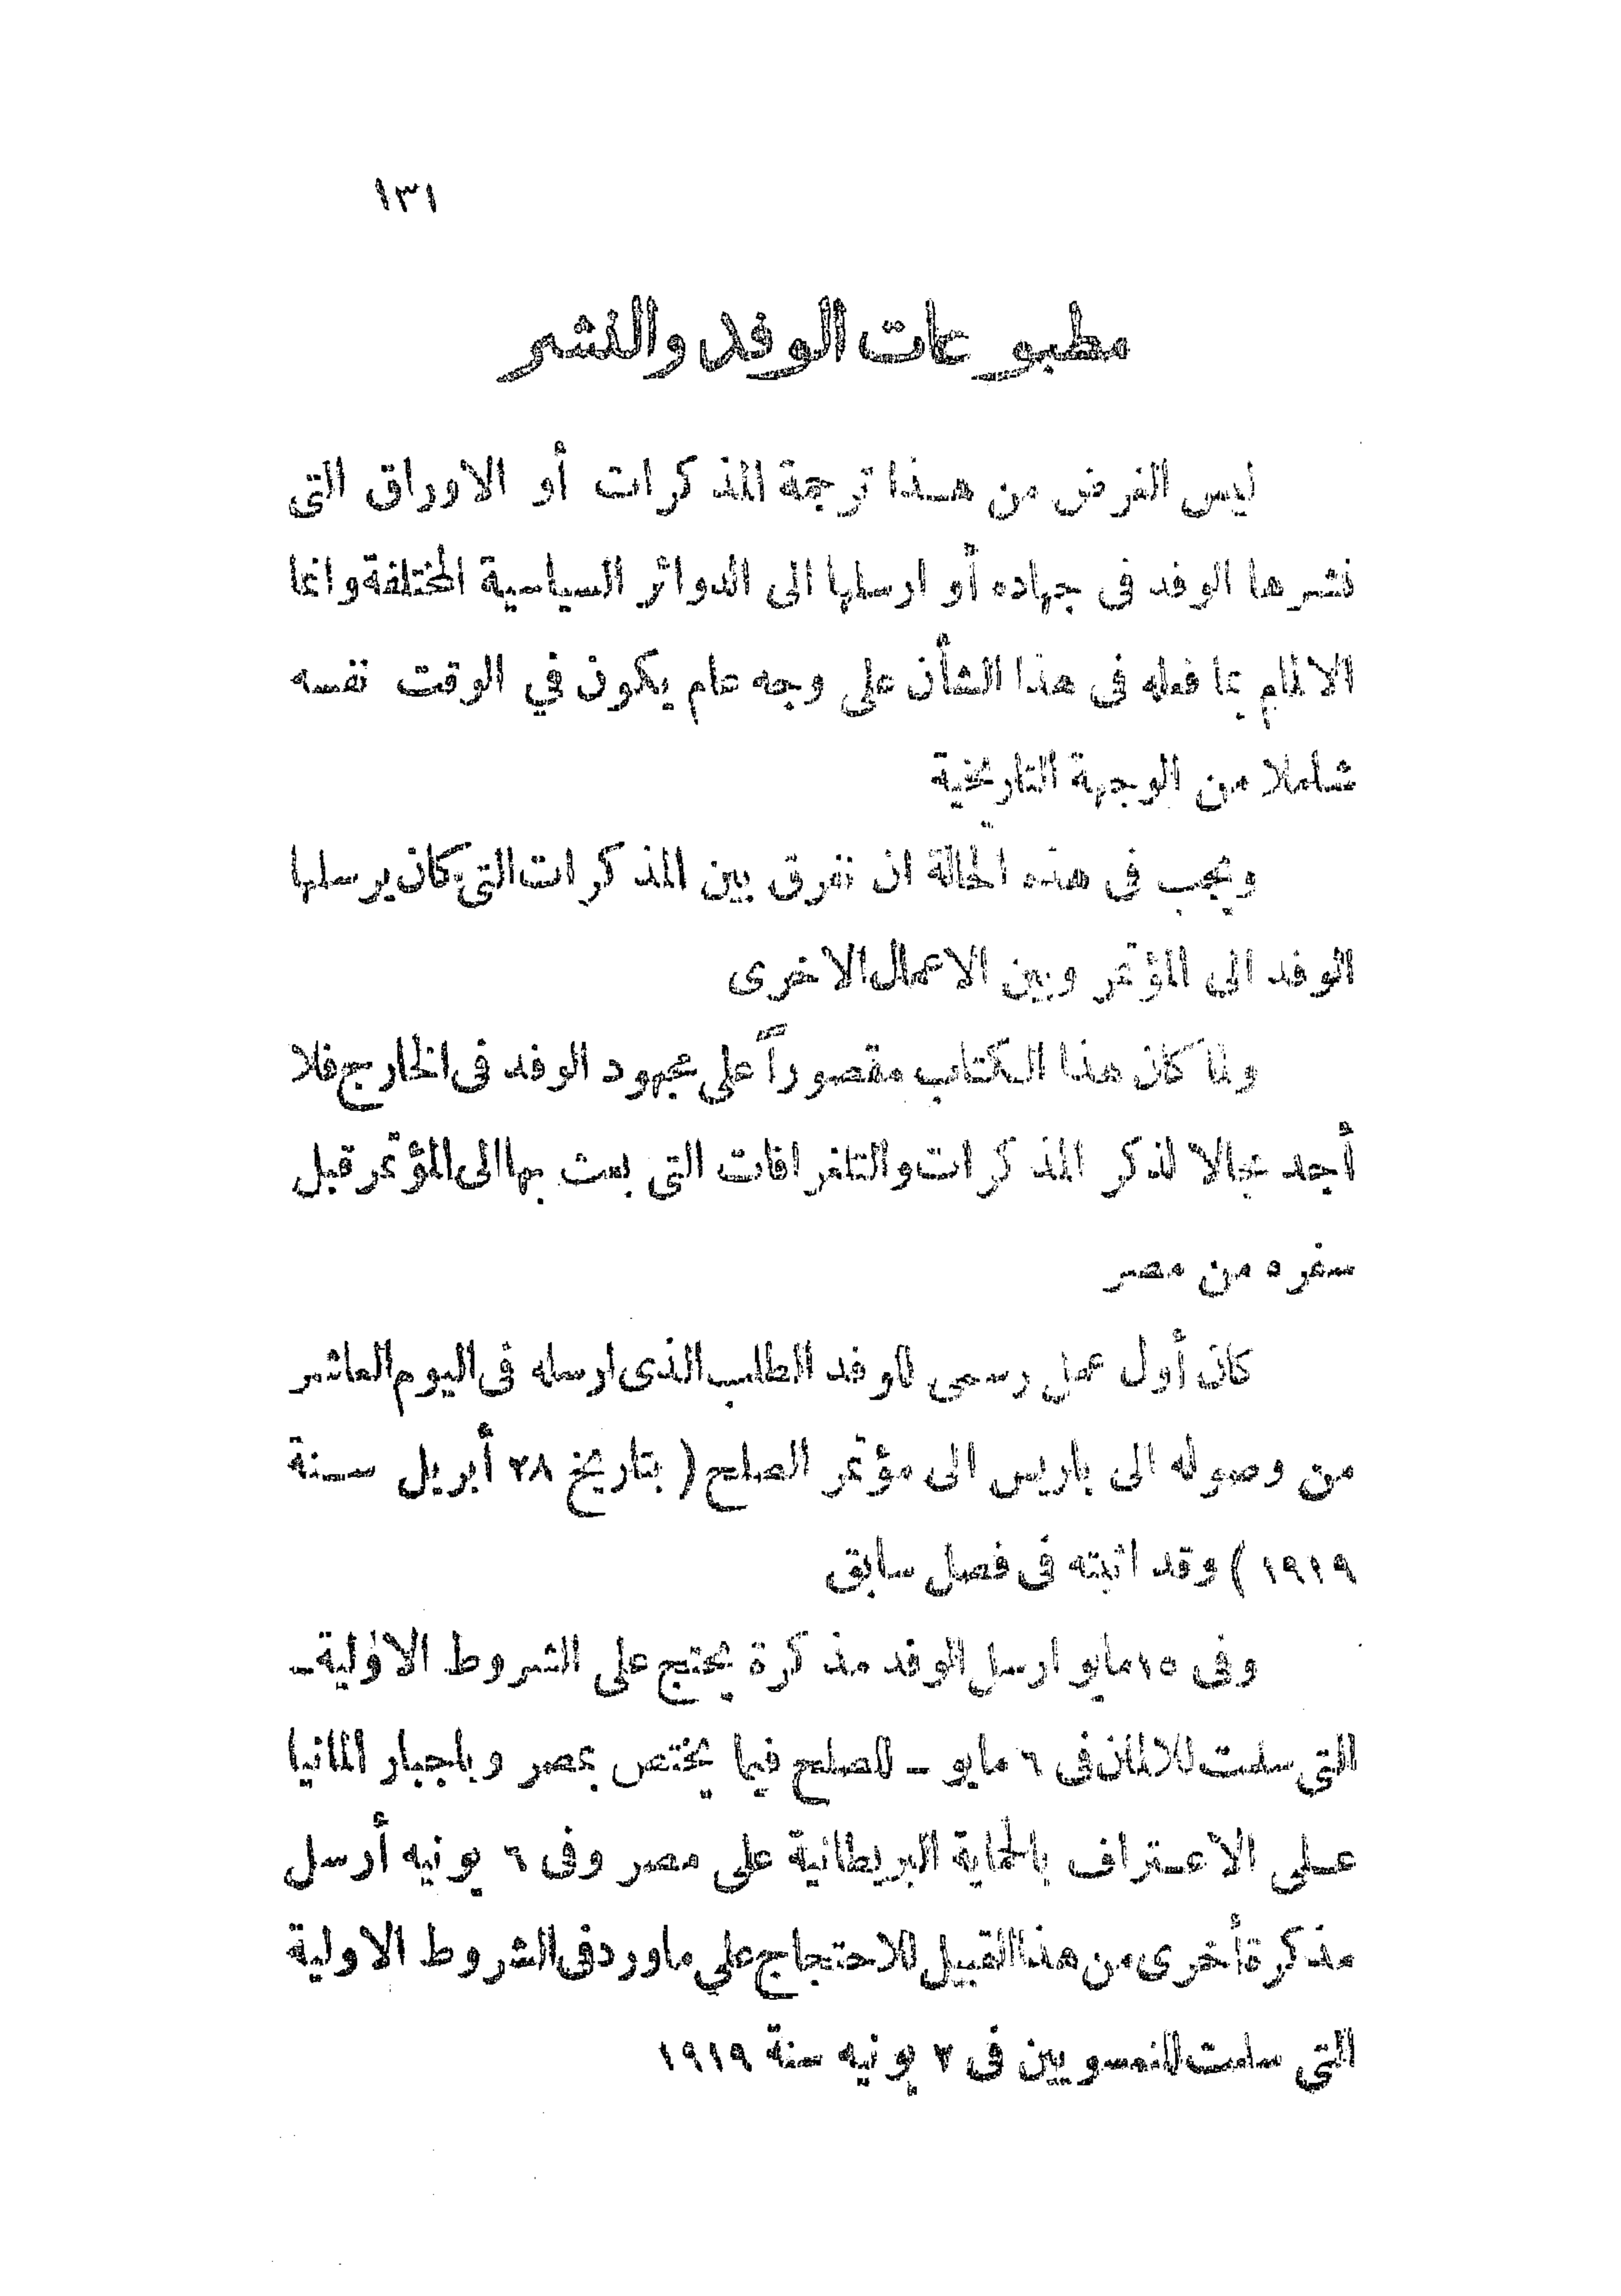 ١٣١
مطبوعات الوفد والنشر
ليس الغرض من هذا ترجمة المذكرات أو الاوراق التى
نشرها الوفد فى جهاده أو ارسلها الى الدوائر السياسية المختلفة وانما
الالمام بما فعله فى هذا الشأن على وجه عام يكون في الوقت نفسه
شاملا من الوجهة التاريخية
ويجب فى هذه الحالة ان نفرق بين المذكرات التى كان يرسلها
الوفد الى المؤتمر وبين الاعمال الاخرى
ولما كان هذا الكتاب مقصوراً على مجهود الوفد فى الخارج فلا
أجد مجالا لذكر المذكرات والتلغرافات التى بعث بها الى المؤتمر قبل
سفره من مصر
كان أول عمل رسمى للوفد الطلب الذى ارسله فى اليوم العاشر
من وصوله الى باريس الى مؤتمر الصلح ( بتاريخ ٢٨ أبريل سنة
١٩١٩ ) وقد اثبته فى فصل سابق
وفى ١٥ مايو ارسل الوفد مذكرة يحتج على الشروط الاولية ـ
التى سلمت للالمان فى ٦ مايو ـ للصلح فيما يختص بمصر وباجبار المانيا
على الاعتراف بالحماية البريطانية على مصر وفى ٦ يونيه أرسل
مذكرة أخرى من هذا القبيل للاحتجاج على ما ورد فى الشروط الاولية
التى سلمت للنمسويين فى ٢ يونيه سنة ١٩١٩